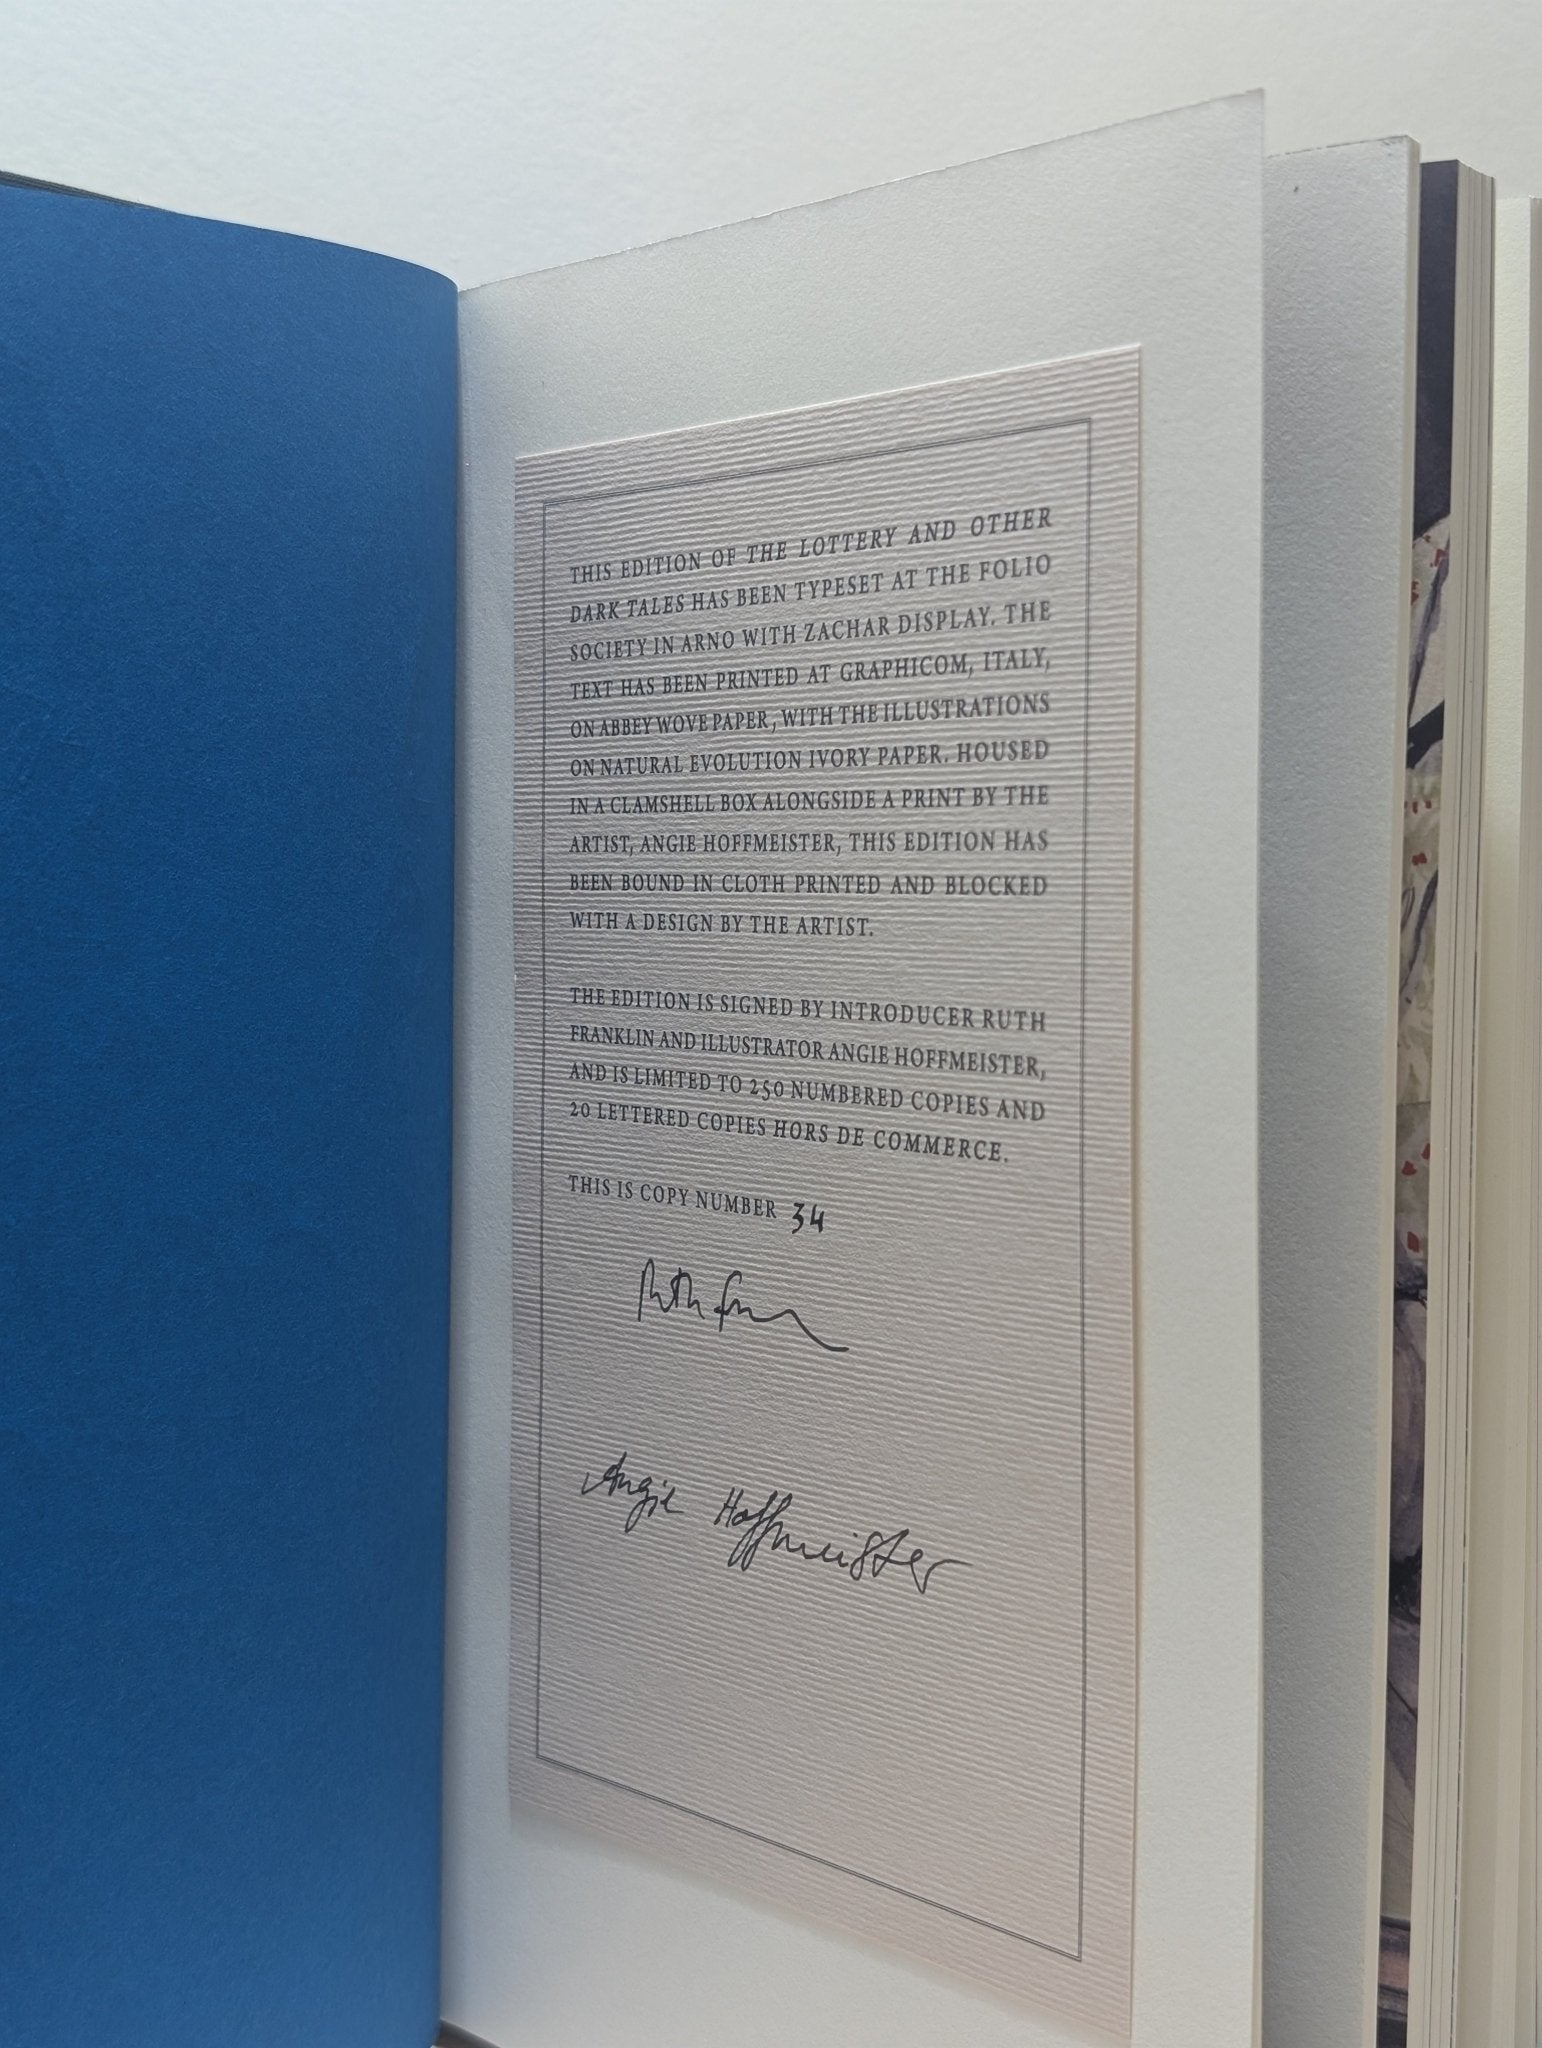 THIS EDITION OF THE LOTTERY AND OTHER
DARK TALES HAS BEEN TYPESET AT THE FOLIO
SOCIETY IN ARNO WITH ZACHAR DISPLAY. THE
TEXT HAS BEEN PRINTED AT GRAPHICOM, ITALY,
ON ABBEY WOVE PAPER, WITH THE ILLUSTRATIONS
ON NATURAL EVOLUTION IVORY PAPER. HOUSED
IN A CLAMSHELL BOX ALONGSIDE A PRINT BY THE
ARTIST, ANGIE HOFFMEISTER, THIS EDITION HAS
BEEN BOUND IN CLOTH PRINTED AND BLOCKED
WITH A DESIGN BY THE ARTIST.
THE EDITION IS SIGNED BY INTRODUCER RUTH
FRANKLIN AND ILLUSTRATOR ANGIE HOFFMEISTER,
AND IS LIMITED TO 250 NUMBERED COPIES AND
20 LETTERED COPIES HORS DE COMMERCE.
THIS IS COPY NUMBER 34
Ruth
Angie Hoffmeister